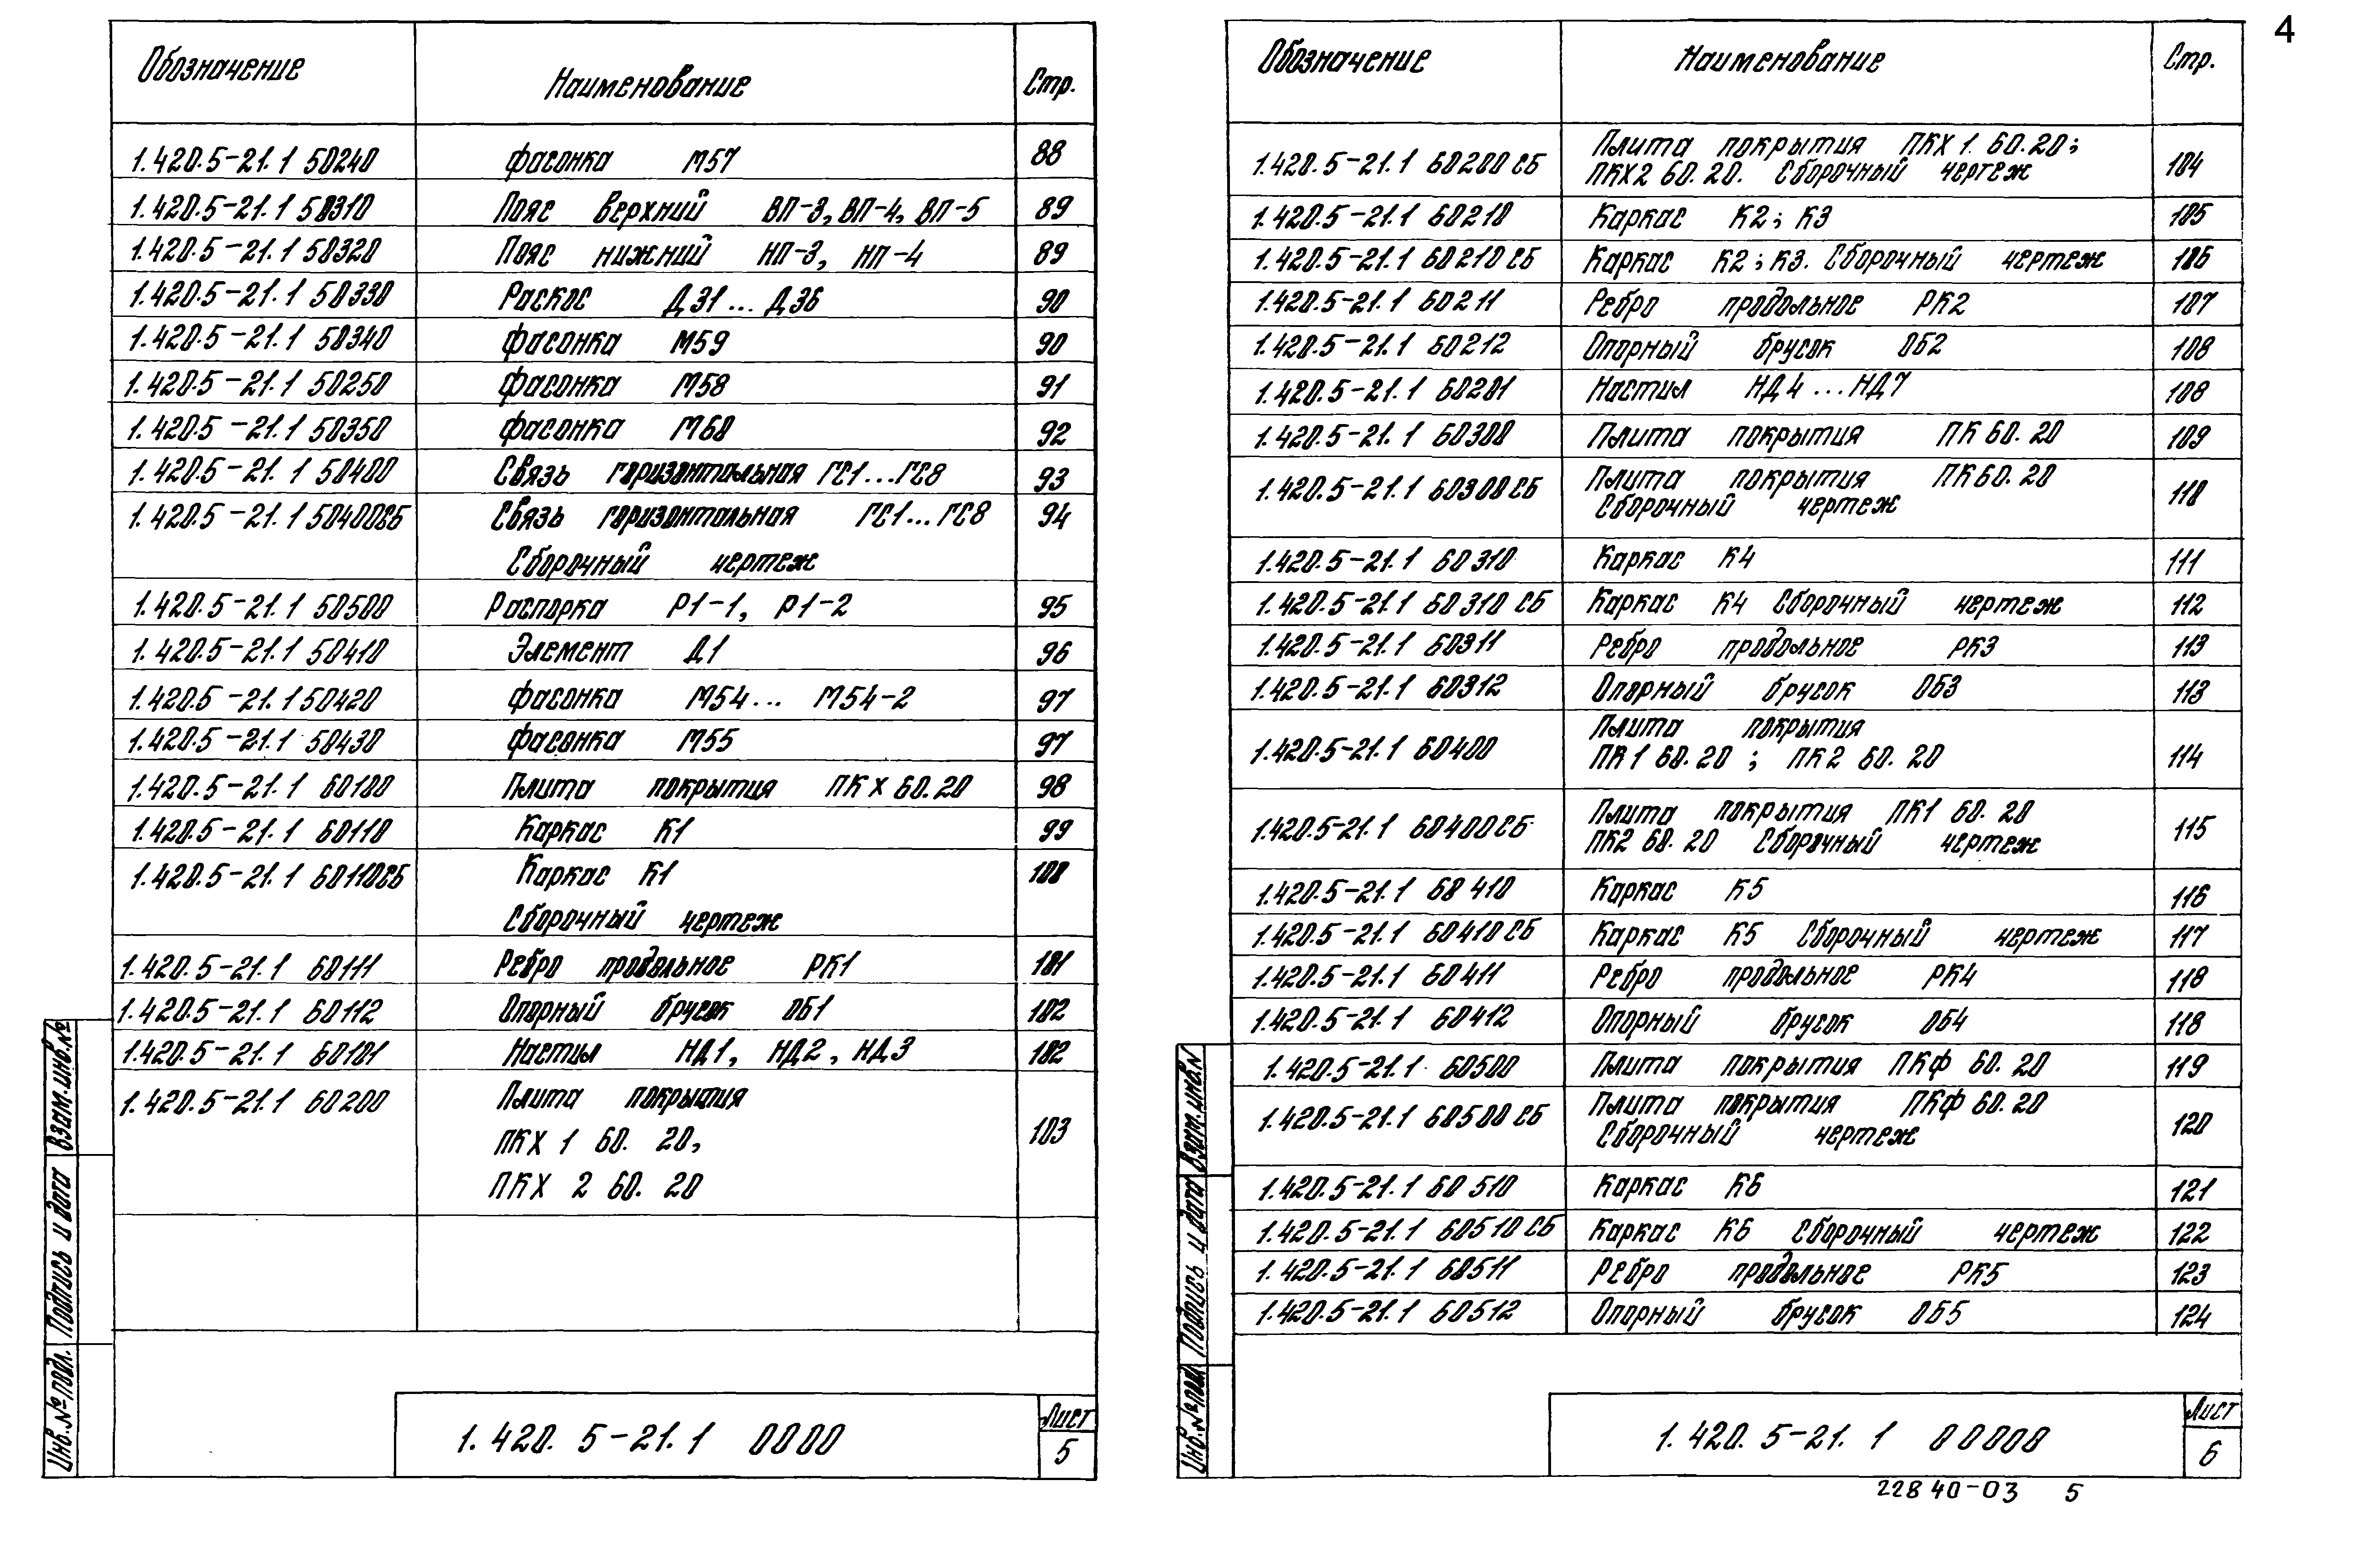 4
Обозначение Наименование Стр.
1.420.5-21.1 50240 фасонка М57 88
1.420.5-21.1 50310 Пояс верхний ВП-3, ВП-4, ВП-5 89
1.420.5-21.1 50320 Пояс нижний НП-3, НП-4 89
1.420.5-21.1 50330 Раскос Д31...Д36 90
1.420.5-21.1 50340 фасонка М59 90
1.420.5-21.1 50250 фасонка М58 91
1.420.5-21.1 50350 фасонка М60 92
1.420.5-21.1 50400 Связь горизонтальная ГС1...ГС8 93
1.420.5-21.1 50400СБ Связь горизонтальная ГС1...ГС8 94
Сборочный чертеж
1.420.5-21.1 50500 Распорка Р1-1, Р1-2 95
1.420.5-21.1 50410 Элемент Д1 96
1.420.5-21.1 50420 фасонка М54... М54-2 97
1.420.5-21.1 50430 фасонка М55 97
1.420.5-21.1 60100 Плита покрытия ПКХ 60.20 98
1.420.5-21.1 60110 Каркас К1 99
1.420.5-21.1 60110СБ Каркас К1 100
Сборочный чертеж
1.420.5-21.1 60111 Ребро продольное РК1 101
1.420.5-21.1 60112 Опорный брусок ОБ1 102
1.420.5-21.1 60101 Настил НД1, НД2, НД3 102
1.420.5-21.1 60200 Плита покрытия
ПКХ 1 60. 20, 103
ПКХ 2 60. 20
Взам.инв.№
Подпись и дата
Инв.№ подл.
1.420. 5-21.1 0000
Лист
5
Обозначение Наименование Стр.
1.420.5-21.1 60200 СБ Плита покрытия ПКХ 1. 60.20; 104
ПКХ2 60.20. Сборочный чертеж
1.420.5-21.1 60210 Каркас К2; К3 105
1.420.5-21.1 60210 СБ Каркас К2; К3. Сборочный чертеж 106
1.420.5-21.1 60211 Ребро продольное РК2 107
1.420.5-21.1 60212 Опорный брусок ОБ2 108
1.420.5-21.1 60201 Настил НД4...НД7 108
1.420.5-21.1 60300 Плита покрытия ПК 60.20 109
1.420.5-21.1 60300СБ Плита покрытия ПК60.20 110
Сборочный чертеж
1.420.5-21.1 60310 Каркас К4 111
1.420.5-21.1 60310 СБ Каркас К4 Сборочный чертеж 112
1.420.5-21.1 60311 Ребро продольное РК3 113
1.420.5-21.1 60312 Опорный брусок ОБ3 113
Плита покрытия
1.420.5-21.1 60400 ПК1 60.20 ; ПК2 60. 20 114
1.420.5-21.1 60400СБ Плита покрытия ПК1 60. 20 115
ПК2 60. 20 Сборочный чертеж
1.420.5-21.1 60410 Каркас К5 116
1.420.5-21.1 60410СБ Каркас К5 Сборочный чертеж 117
1.420.5-21.1 60411 Ребро продольное РК4 118
1.420.5-21.1 60412 Опорный брусок ОБ4 118
1.420.5-21.1 60500 Плита покрытия ПКФ 60. 20 119
1.420.5-21.1 60500 СБ Плита покрытия ПКФ 60. 20 120
Сборочный чертеж
1.420.5-21.1 60510 Каркас К6 121
1.420.5-21.1 60510 СБ Каркас К6 Сборочный чертеж 122
1.420.5-21.1 60511 Ребро продольное РК5 123
1.420.5-21.1 60512 Опорный брусок ОБ5 124
Взам.инв.N
Подпись и дата
Инв.№ подл
1. 420. 5-21. 1 00000
Лист
6
22840-03 5